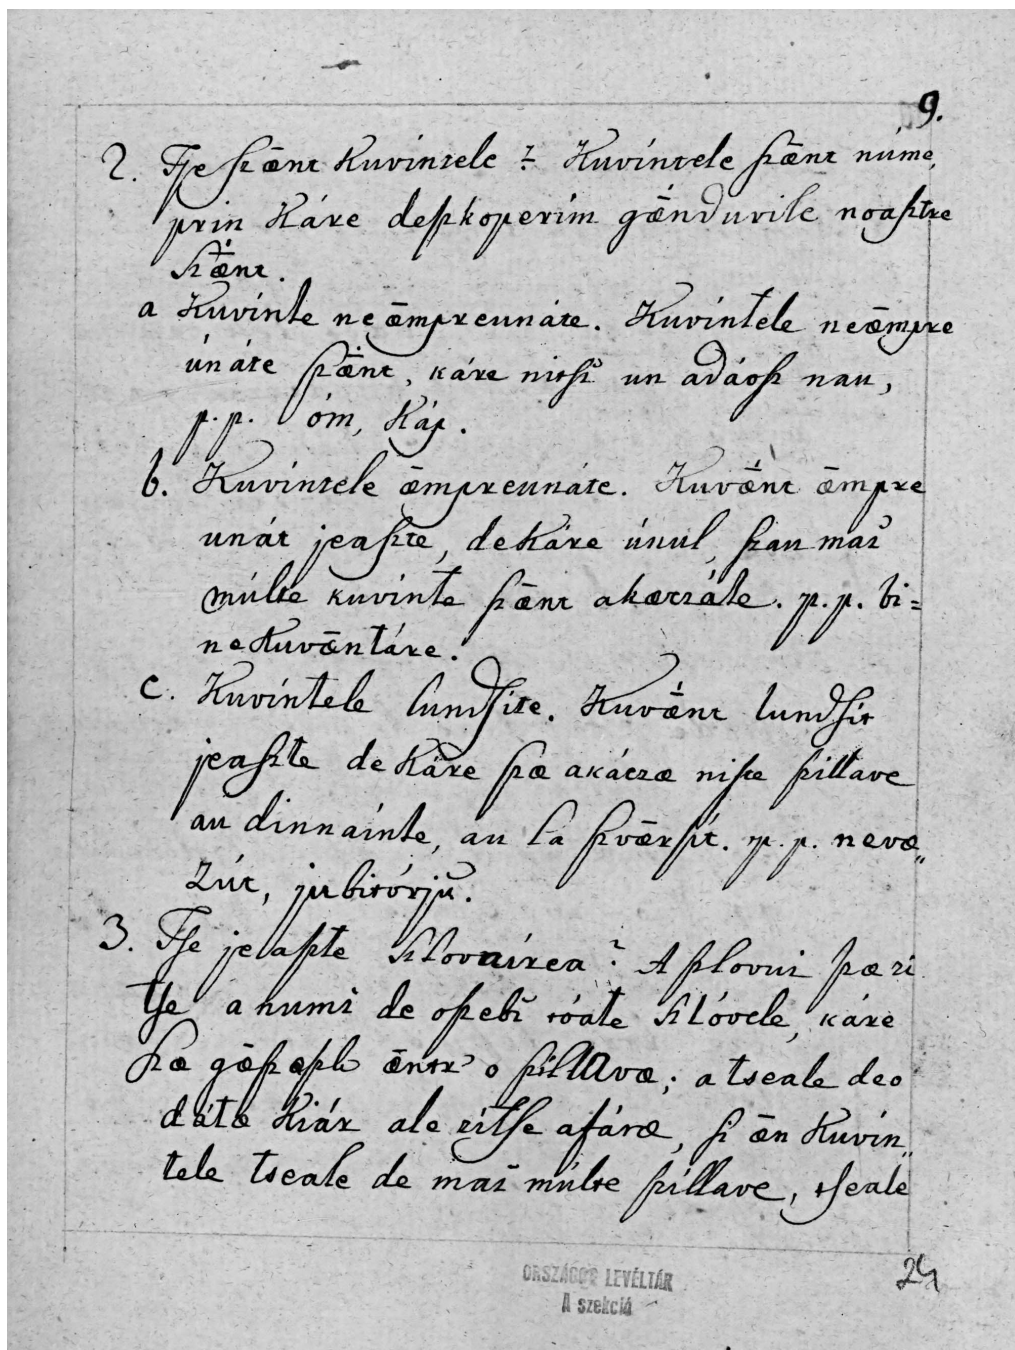 9.
2. Tſe ſzænt Kuvintele? Kuvíntele ſzænt núme,
prin Káre deſzkoperím gǽnduvile noaſztre
ſzǽnt.
a Kuvínte neǣmpreunáte. Kuvíntele neǣmpre
únáte ſzǽnt, káre nitſĭ un adáoſz nau,
p.p. óm, Káp.
b. Kuvíntele ǣmpreunáte. Kuvǽnt ǣmpre
unát jeaſzte, deKáre únul, ſzau maĭ
múlte kuvinte ſzænt akætzáte. p.p. bi=
neKuvǣntáre.
c. Kuvíntele lundſite. Kuvǽnt lundſit
jeaſzte de Káre ſzæ akáczæ niſte ſzillave
au dinnaínte, au la ſzværſít. p.p. nevæ„
zút, jubitórjŭ.
3. Tſe jeaſzte Szlovnírea? A ſzlovni ſzæ zi
tſe a numi de oſzebĭ tóate Szlóvele, káre
ſzæ gæſzæſzk ǣntr' o ſzillavæ; a tseale deo
dátæ Kiár ale zitſe afáræ, ſi ǣn Kuvín„
tele tseale de maĭ múlte ſzillave, tſeale
24
ORSZÁGOS LEVÉLTÁR
A szekció